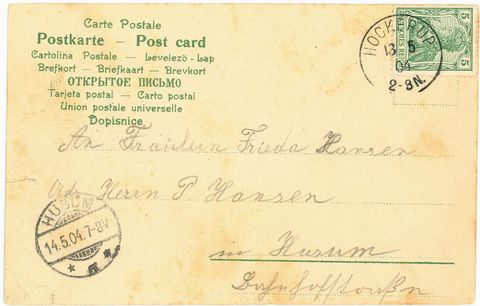 Carte Postale
Postkarte – Post card
Cartolina Postale – Levelező-Lap
Brefkort – Briefkaart – Brevkort
ОТКРЫТОЕ ПИСЬМО
Tarjeta postal – Carto postal
Union postale universelle
Dopisnice
HOCKERUP
13 5
04
2-3N.
5
5
An Fräulein Frieda Hansen
Adr. Herrn P. Hansen
HUSUM
14.5.04.7-8V
in Husum
Bahnhofstraße